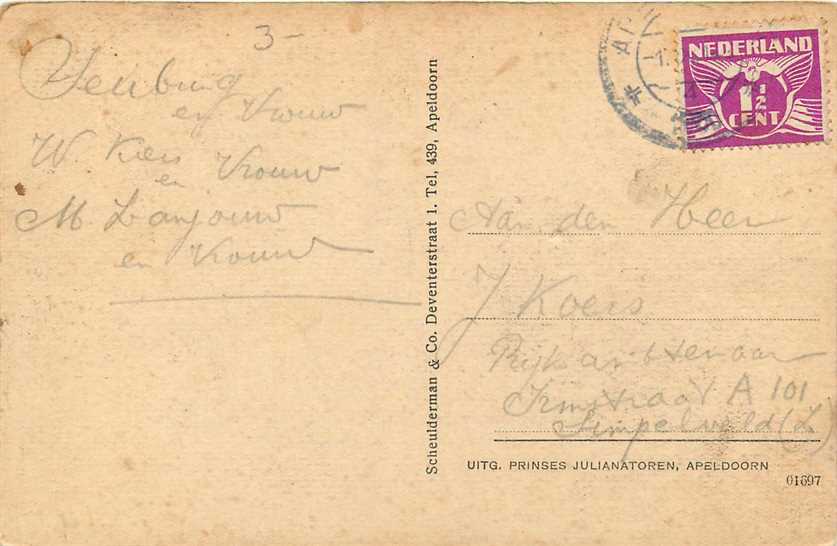 3-
en Vrouw
W. Koers
en Vrouw
M Lanjouw
en Vrouw
Scheulderman & Co. Deventerstraat 1. Tel, 439, Apeldoorn
NEDERLAND
1½
CENT
Aan den Heer
J Koers
Rijksambtenaar
Irmstraat A 101
Simpelveld (L)
UITG. PRINSES JULIANATOREN, APELDOORN
01697